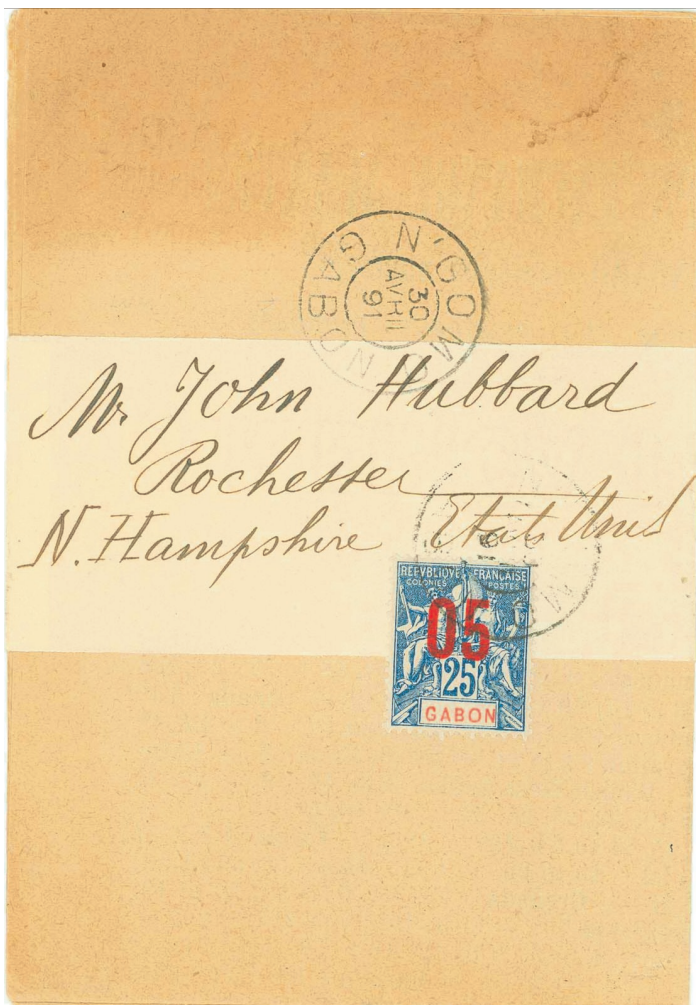 N'GOMO
GABON
30
AVRIL
91
Mr John Hubbard
Rochester
N. Hampshire Etats Unis
REPUBLIQUE FRANCAISE
COLONIES POSTES
05
25
GABON